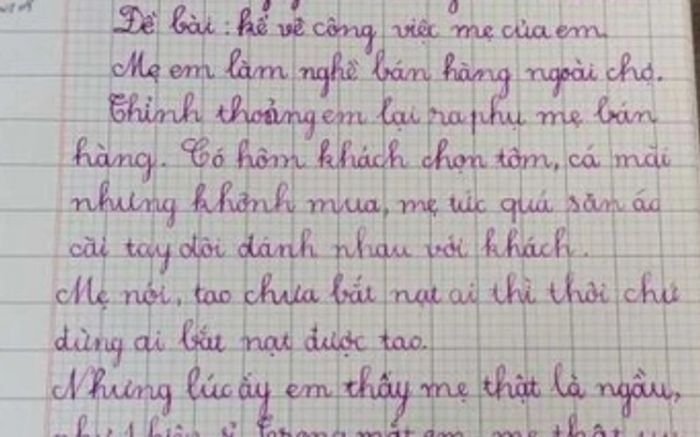 Đề bài: kể về công việc mẹ của em
Mẹ em làm nghề bán hàng ngoài chợ.
Thỉnh thoảng em lại ra phụ mẹ bán
hàng. Có hôm khách chọn tôm, cá mãi
nhưng không mua, mẹ tức quá săn áo
cài tay đôi đánh nhau với khách.
Mẹ nói, tao chưa bắt nạt ai thì thôi chứ
đừng ai bắt nạt được tao.
Nhưng lúc ấy em thấy mẹ thật là ngầu,
như 1 hiệp sĩ. Trong mắt em, mẹ thật